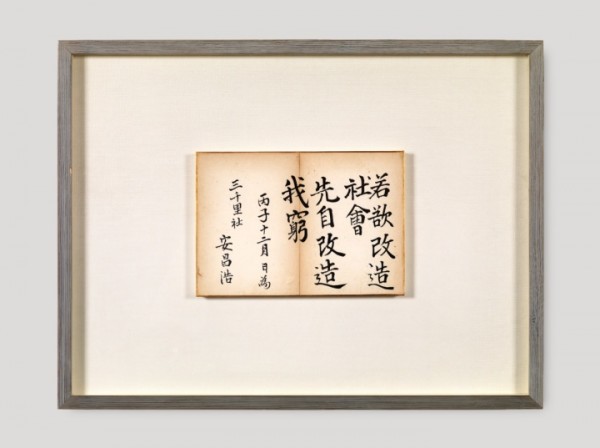 若欲改造
社會
先自改造
我窮
丙子十二月 日為
三十里社
安昌浩